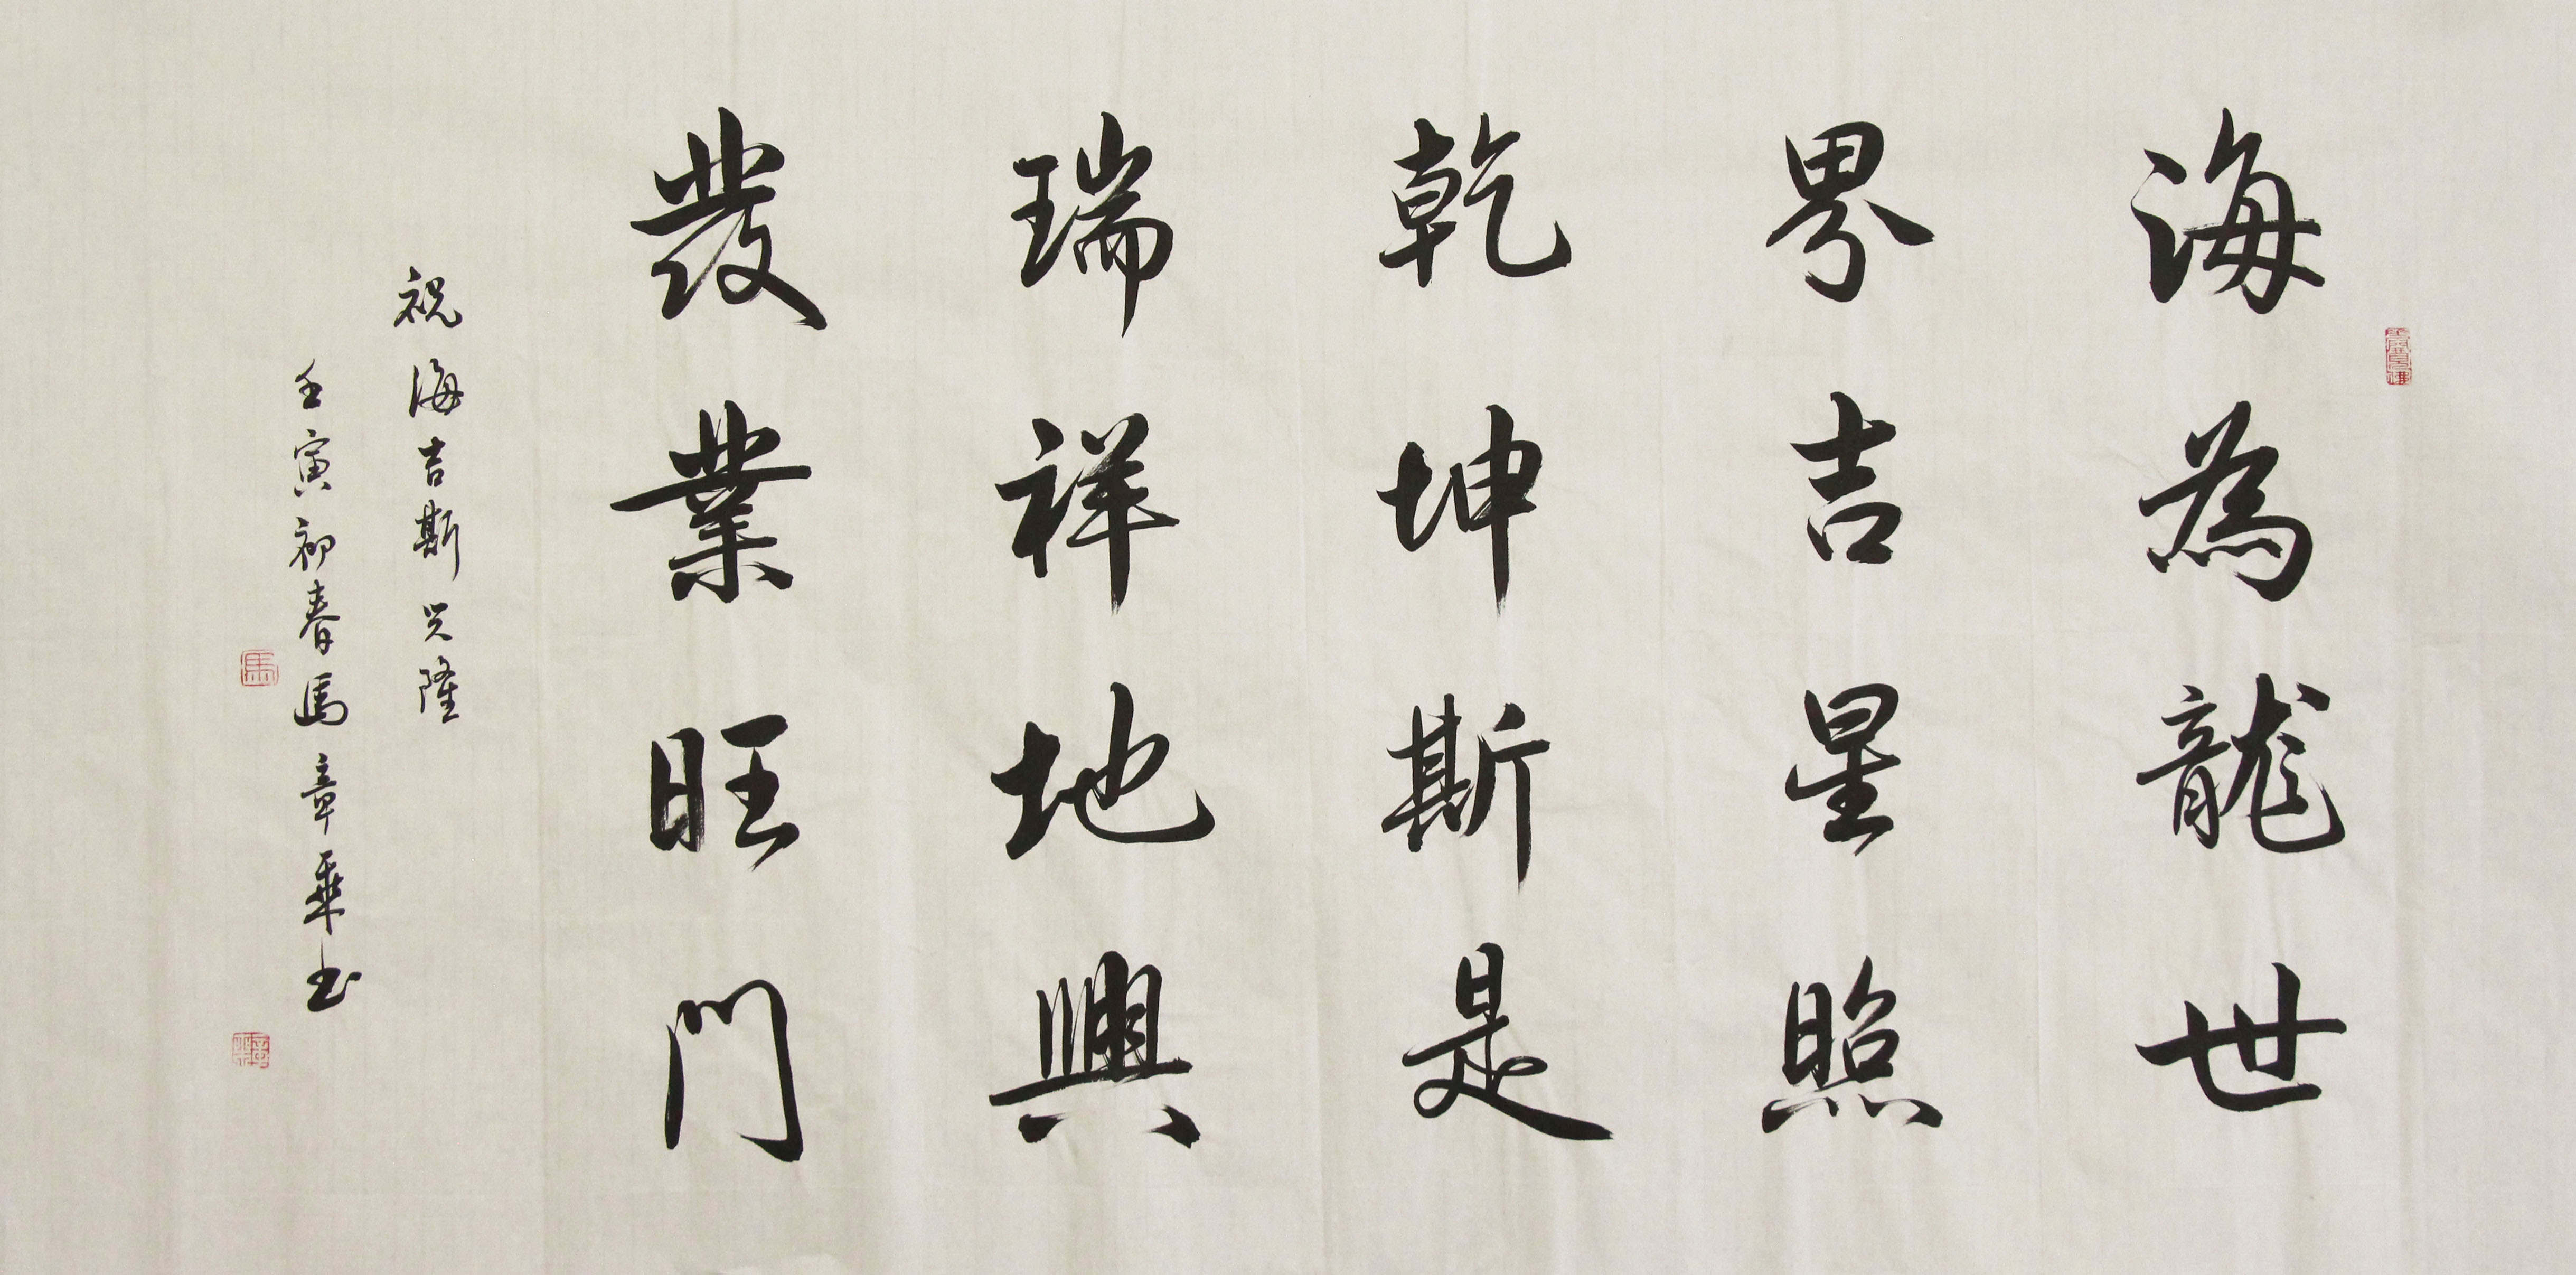 海為龍世
界吉星照
乾坤斯是
瑞祥地興
發業旺門
祝海吉斯兴隆
壬寅初春馬章乘书
馬